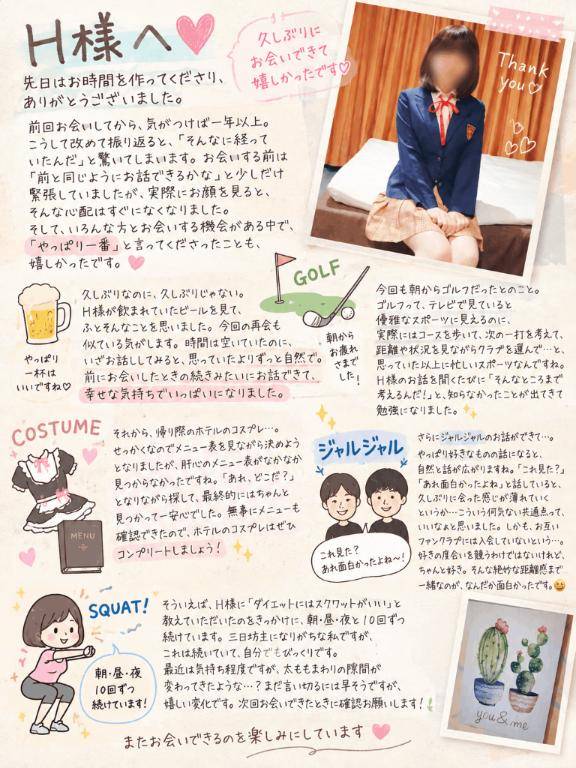 H様へ
久しぶりに
お会いできて
嬉しかったです♡
先日はお時間を作ってくださり、
ありがとうございました。
Thank
you♡
前回お会いしてから、気がつけば一年以上。
こうして改めて振り返ると、「そんなに経って
いたんだ」と驚いてしまいます。お会いする前は
「前と同じようにお話できるかな」と少しだけ
緊張していましたが、実際にお顔を見ると、
そんな心配はすぐになくなりました。
そして、いろんな方とお会いする機会がある中で、
「やっぱり一番」と言ってくださったことも、
嬉しかったです。
やっぱり
一杯は
いいですね♡
久しぶりなのに、久しぶりじゃない。
H様が飲まれていたビールを見て、
ふとそんなことを思いました。今回の再会も
似ている気がします。時間は空いていたのに、
いざお話ししてみると、思っていたよりずっと自然で。
前にお会いしたときの続きみたいにお話できて、
幸せな気持ちでいっぱいになりました。
GOLF
朝から
お疲れ
さまで
した!
今回も朝からゴルフだったとのこと。
ゴルフって、テレビで見ていると
優雅なスポーツに見えるのに、
実際にはコースを歩いて、次の一打を考えて、
距離や状況を見ながらクラブを選んで…と、
思っていた以上に忙しいスポーツなんですね。
H様のお話を聞くたびに「そんなところまで
考えるんだ!」と、知らなかったことが出てきて
勉強になりました。
COSTUME
MENU
それから、帰り際のホテルのコスプレ…。
せっかくなのでメニュー表を見ながら決めよう
となりましたが、肝心のメニュー表がなかなか
見つからなかったですね。「あれ、どこだ?」
となりながら探して、最終的にはちゃんと
見つかって一安心でした。無事にメニューも
確認できたので、ホテルのコスプレはぜひ
コンプリートしましょう!
ジャルジャル
これ見た?
あれ面白かったよね〜!
さらにジャルジャルのお話ができて…。
やっぱり好きなものの話になると、
自然と話が広がりますね。「これ見た?」
「あれ面白かったよね」と話していると、
久しぶりに会った感じが薄れていく
というか…こういう何気ない共通点って、
いいなぁと思いました。しかも、お互い
ファンクラブには入会していないという…。
好きの度合いを競うわけではないけれど、
ちゃんと好き。そんな絶妙な距離感まで
一緒なのが、なんだか面白かったです。
SQUAT!
朝・昼・夜
10回ずつ
続けています!
そういえば、H様に「ダイエットにはスクワットがいい」と
教えていただいたのをきっかけに、朝・昼・夜と10回ずつ
続けています。三日坊主になりがちな私ですが、
これは続いていて、自分でもびっくりです。
最近は気持ち程度ですが、太ももまわりの隙間が
変わってきたような…?まだ言い切るには早そうですが、
嬉しい変化です。次回お会いできたときに確認お願いします!
you & me
またお会いできるのを楽しみにしています